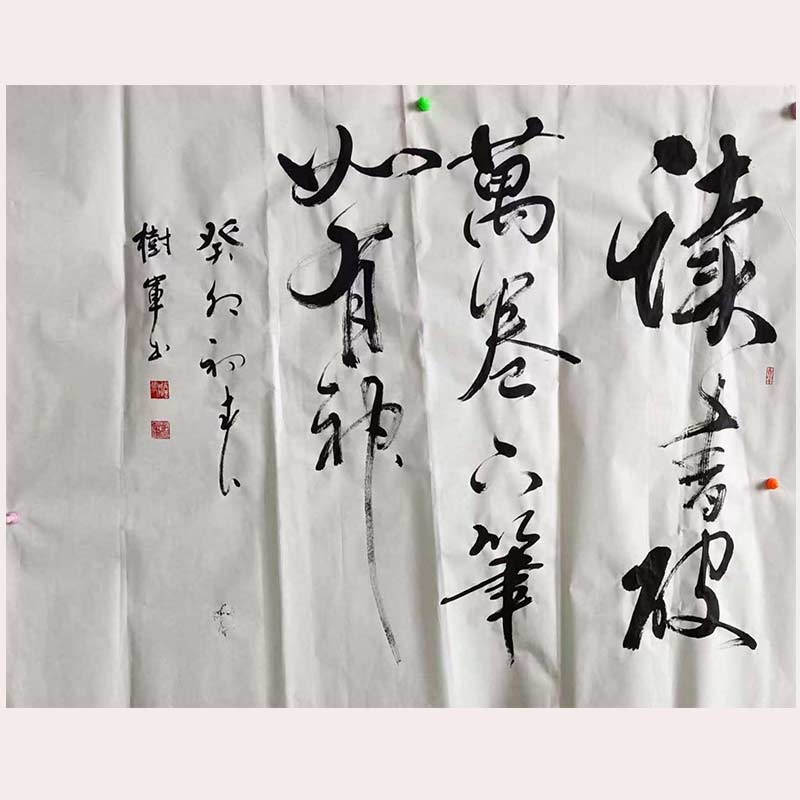 读書破
萬卷下筆
如有神
癸卯初春
樹軍书